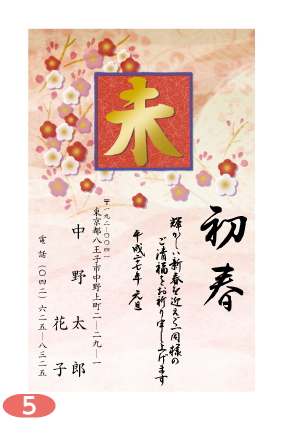 未
初春
輝かしい新春を迎えご一同様の
ご清福をお祈り申し上げます
平成二七年 元旦
〒一九二-〇〇四一
東京都八王子市中野上町二-二九-一
中野太郎
花子
電話(〇四二)六二五-八三二五
5